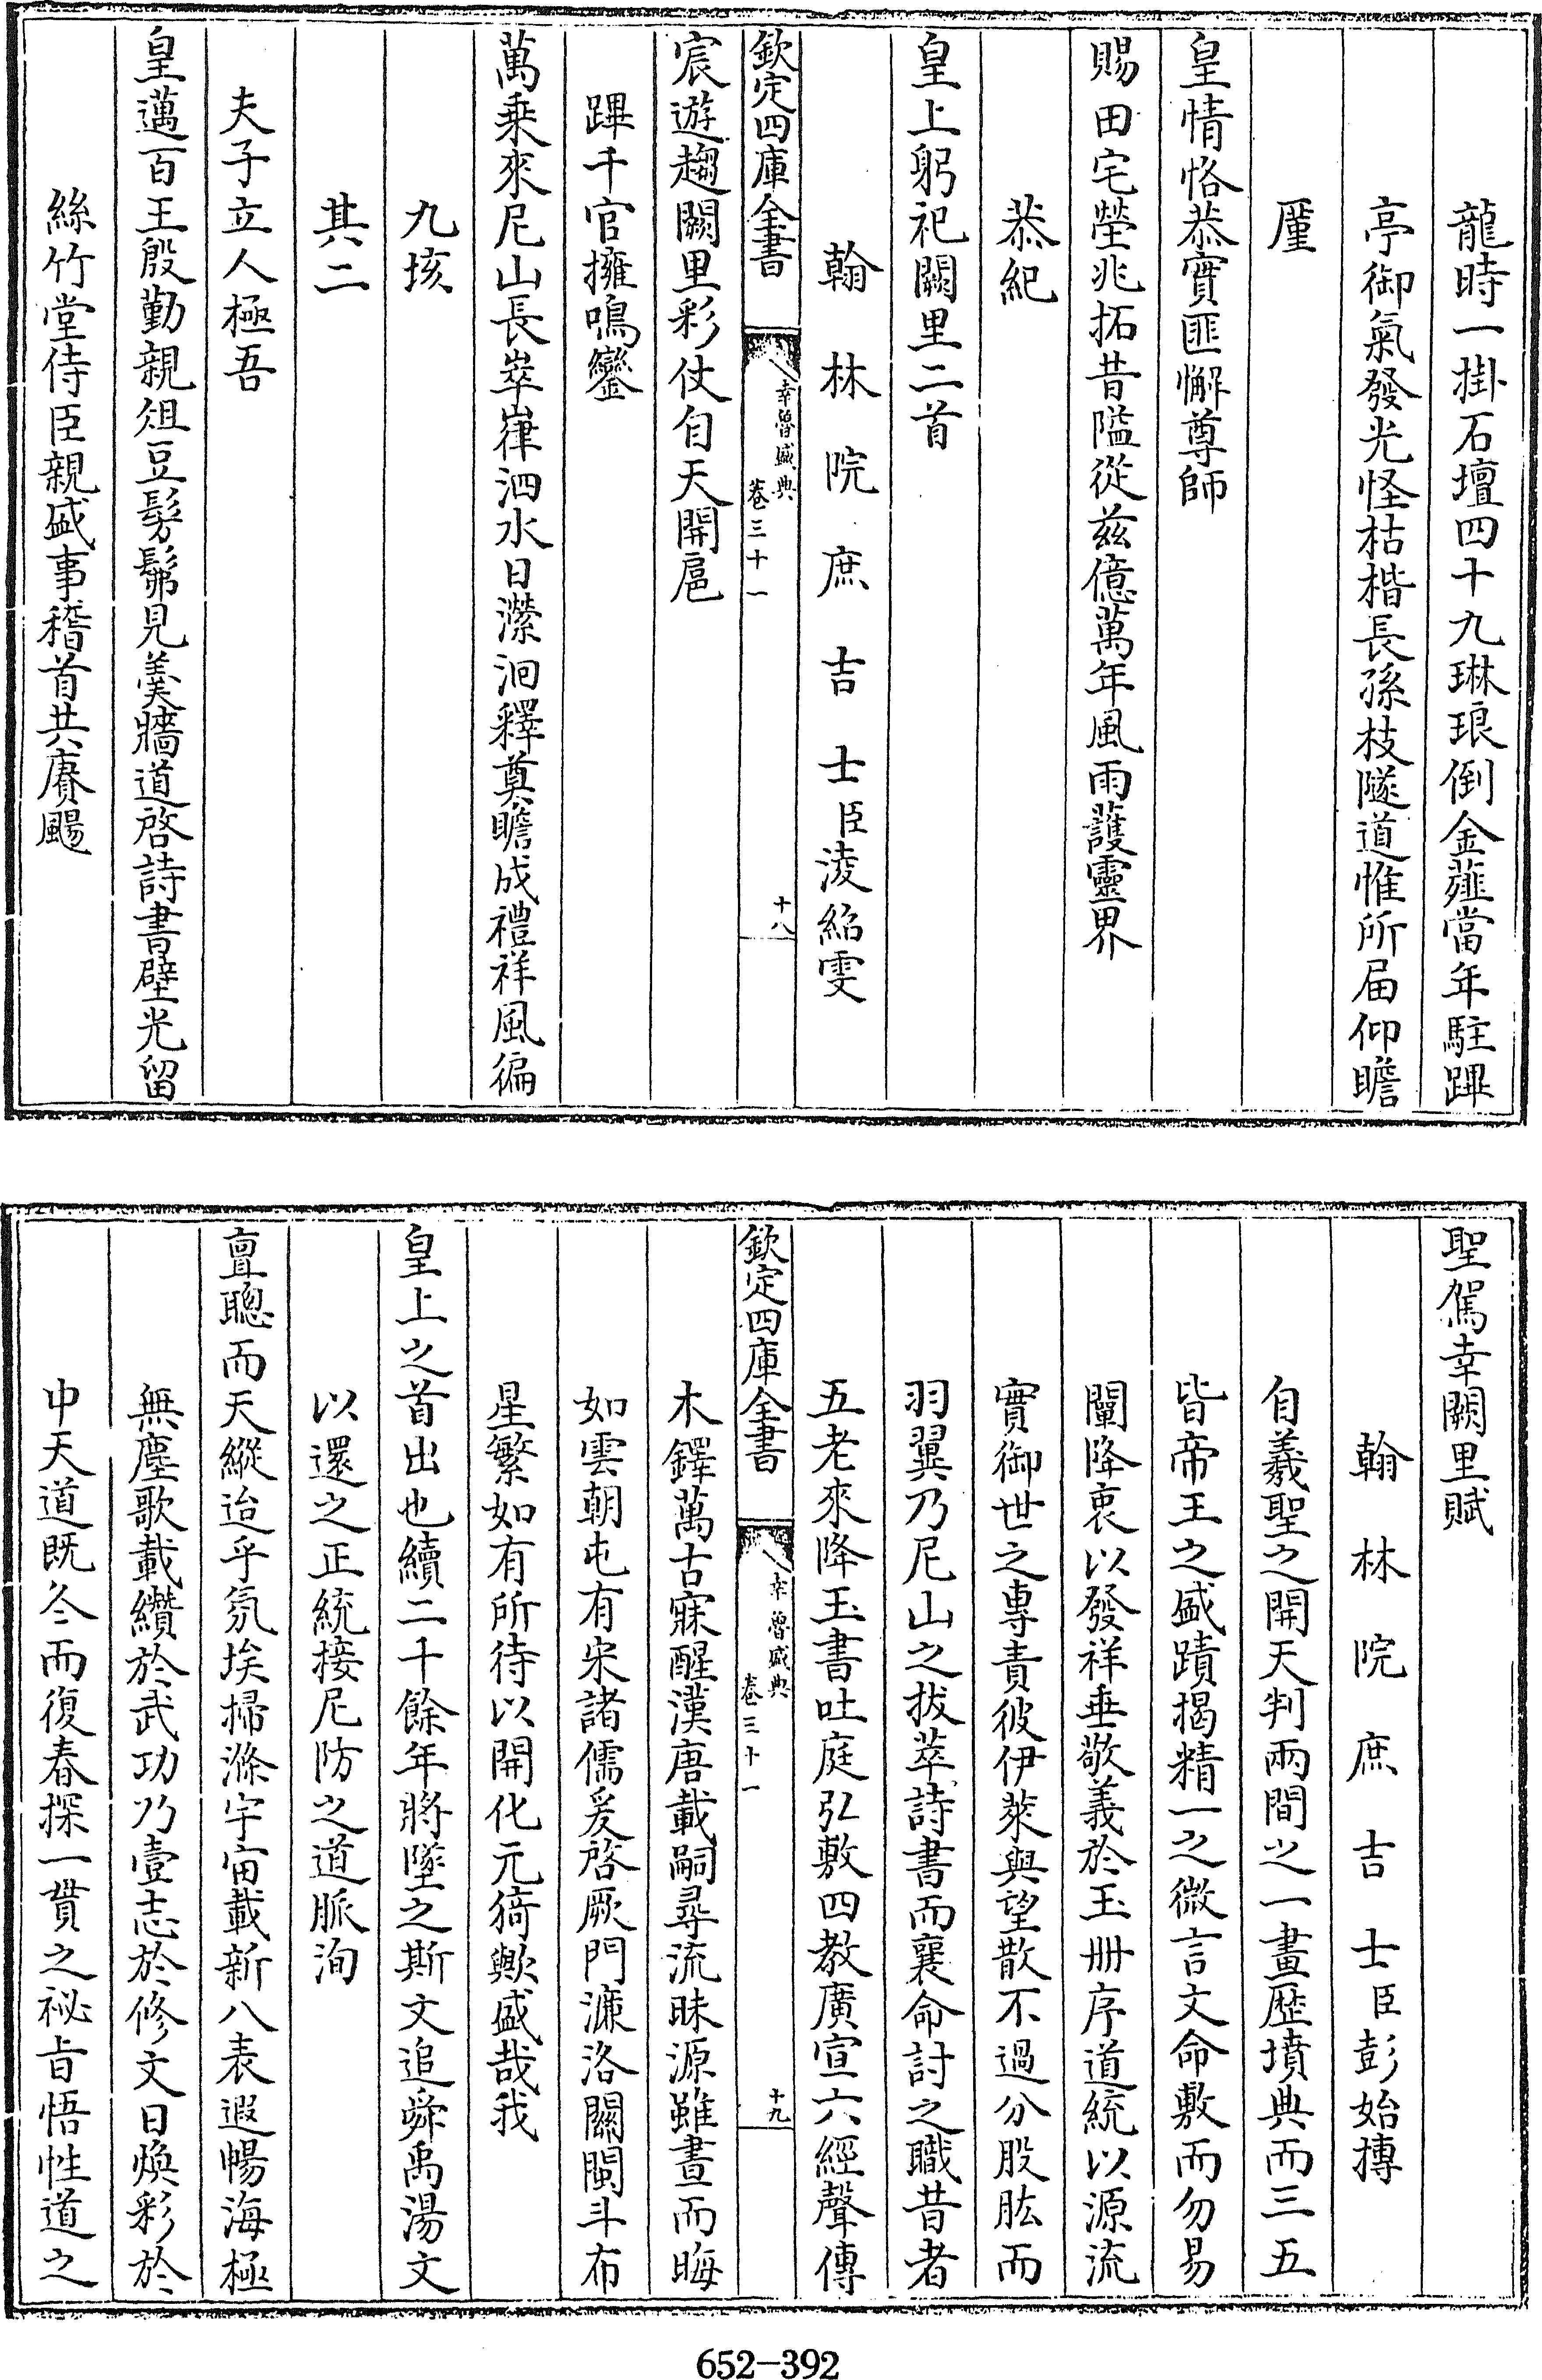 龍時一掛石壇四十九琳琅倒金薤當年駐蹕
亭御氣發光怪枯楷長孫枝隧道惟所届仰瞻
厪
皇情恪恭實匪懈尊師
賜田宅塋兆拓昔隘從兹億萬年風雨護靈界
恭紀
皇上躬祀闕里二首
翰林院庶吉士臣淩紹雯
欽定四庫全書
幸魯盛典
卷三十一
十八
宸遊趨闕里彩仗自天開扈
蹕千官擁鳴鑾
萬乗來尼山長崒嵂泗水日瀠洄釋奠瞻成禮祥風徧
九垓
其二
夫子立人極吾
皇邁百王殷勤親俎豆髣髴見羮牆道啓詩書壁光留
絲竹堂侍臣親盛事稽首共賡颺
聖駕幸闕里賦
翰林院庶吉士臣彭始摶
自羲聖之開天判兩間之一畫歴墳典而三五
皆帝王之盛蹟揭精一之微言文命敷而勿易
闡降衷以發祥垂敬義於玉冊序道統以源流
實御世之專責彼伊萊與望散不過分股肱而
羽翼乃尼山之拔萃詩書而襄命討之職昔者
五老來降玉書吐庭弘敷四教廣宣六經聲傳
欽定四庫全書
幸魯盛典
卷三十一
十九
木鐸萬古寐醒漢唐載嗣尋流昧源雖晝而晦
如雲朝屯有宋諸儒爰啓厥門濂洛關閩斗布
星繁如有所待以開化元猗歟盛哉我
皇上之首出也續二千餘年將墜之斯文追舜禹湯文
以還之正統接尼防之道脈洵
亶聰而天縱迨乎氛埃掃滌宇宙載新八表遐暢海極
無塵歌載纘於武功乃壹志於修文日煥彩於
中天道既冬而復春探一貫之祕旨悟性道之
652-392